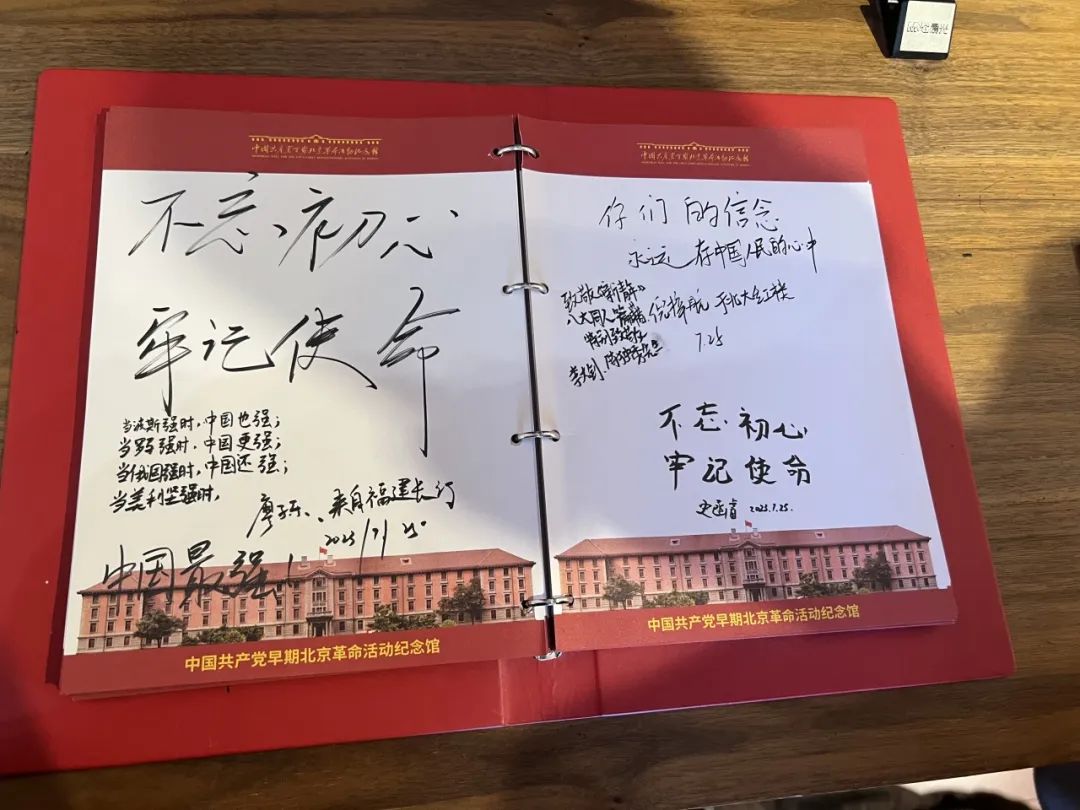 中国共产党早期北京革命活动纪念馆
不忘初心
牢记使命
当波斯强时,中国也强;
当罗马强时,中国更强;
当俄国强时,中国还强;
当美利坚强时,
中国最强!
来自福建长汀
中国共产党早期北京革命活动纪念馆
中国共产党早期北京革命活动纪念馆
你们的信念
永远在中国人民的心中
致敬《新青年》
于北大红楼
7.25
李大钊、陈独秀
不忘初心
牢记使命
2025.7.25.
中国共产党早期北京革命活动纪念馆